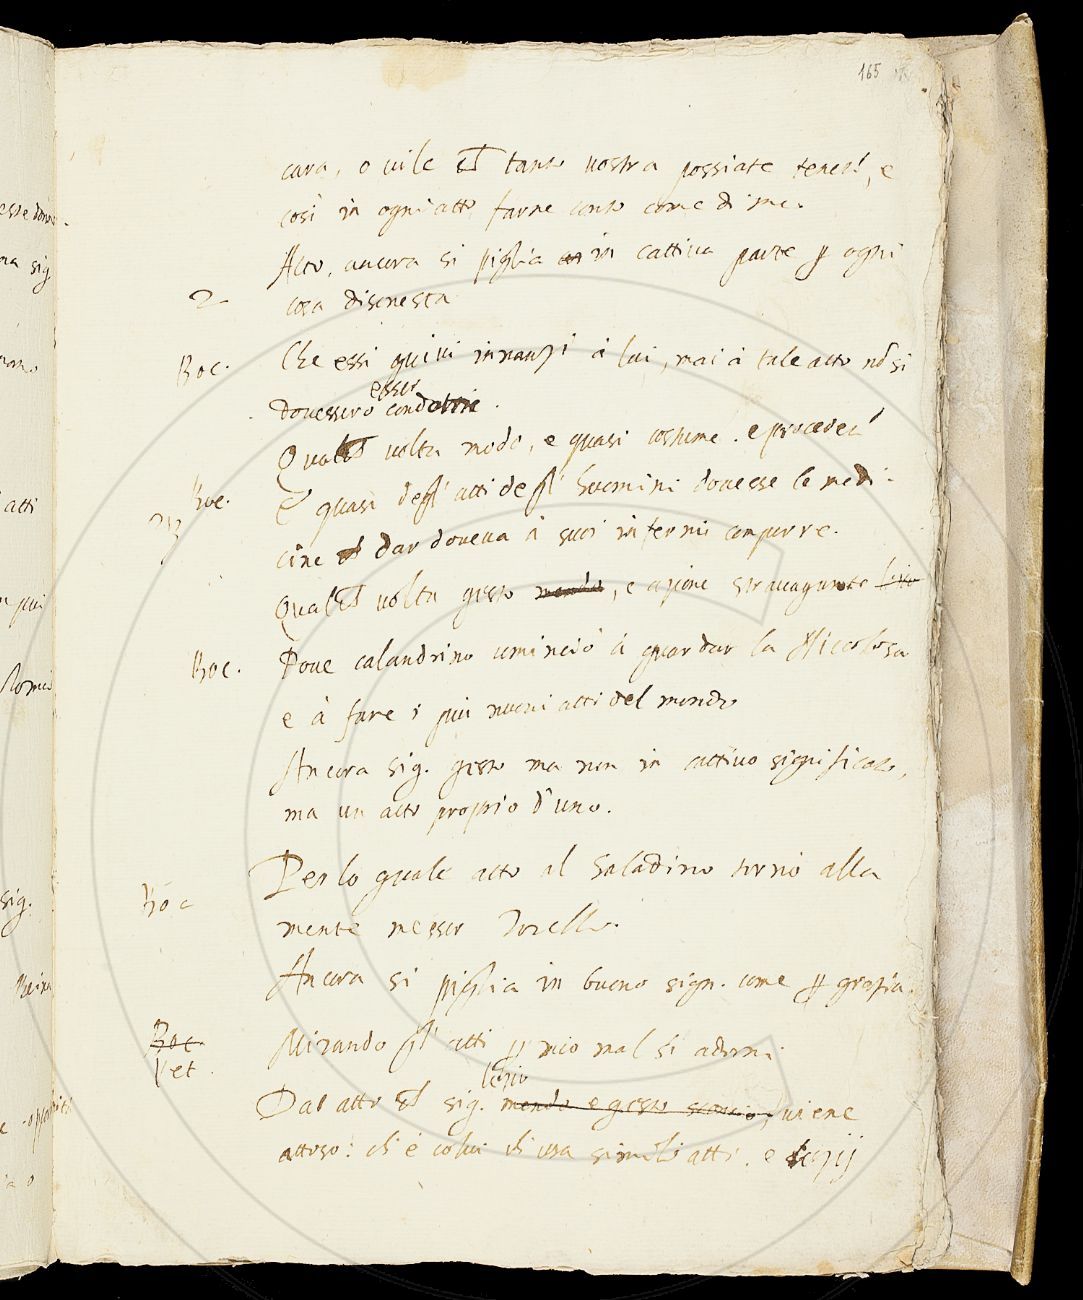 165
cara, o vile tanto vostra possiate tener, e
così in ogni atto farne conto come di me.
Atto, ancora si piglia in in cattiva parte ꝑ ogni
2 cosa disonesta
Boc. Che essi quivi innanzi à lui, mai à tale atto nõ si
esser
dovessero condotti.
volta modo, e quasi costume. e proceder
Boc. E quasi degl' atti degl' huomini dovesse le medi-
3 cine dar doveva à suoi infermi comporre.
volta gesto modo, e azione stravagante lezio
Boc. Dove calandrino cominciò à guardar la Niccolosa
e à fare i più nuovi atti del mondo
Ancora sig. gesto ma non in cattivo significato,
ma un atto proprio d'uno.
Boc Per lo quale atto al Saladino tornò alla
mente messer Torello.
Ancora si piglia in buono sign. come ꝑ grazia.
Boc. Mirando gl' atti ꝑ mio mal si adorni
Pet.
lezio
Da atto sig. modo e gesto, viene
attoso: è colui usa simili atti. e lezij